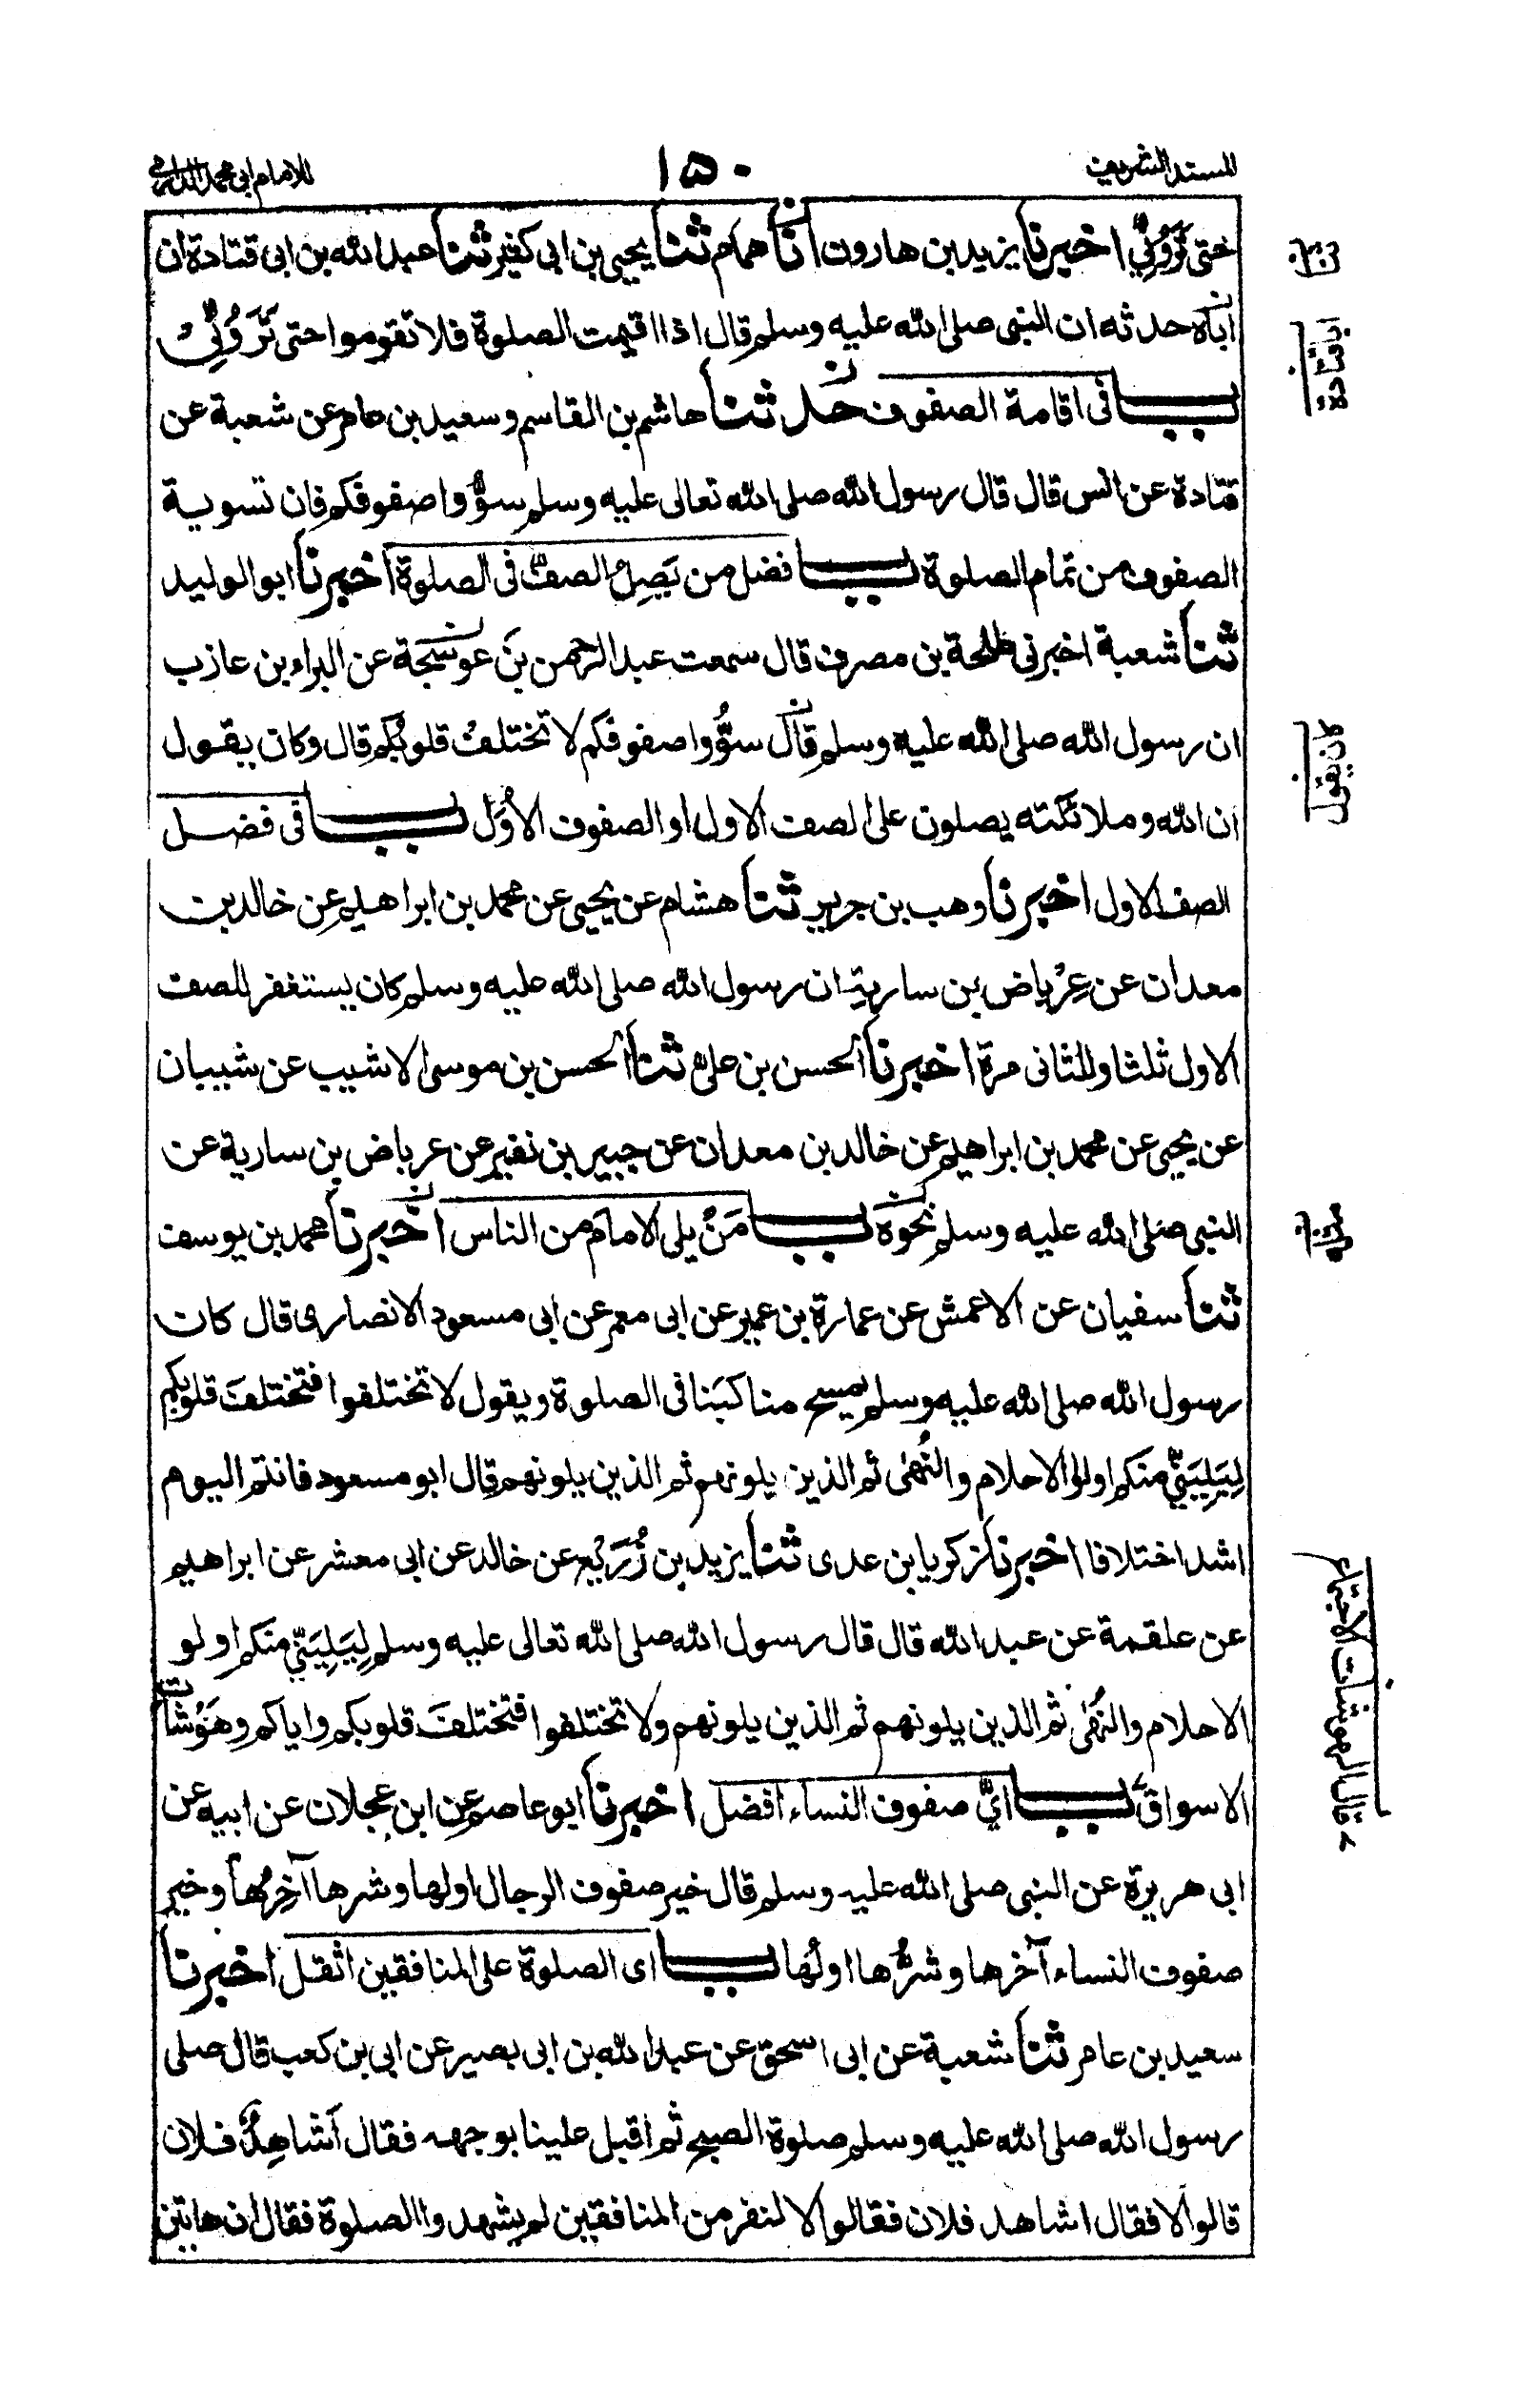 المسند الشريف
١٥٠
للامام ابى محمد الدارمى
حتى تَرَوْنِيْ اخبرنا يزيد بن هارون انا همام ثنا يحيى بن ابى كثير ثنا عبد الله بن ابى قتادة ان
اباه حدثه ان النبى صلى الله عليه وسلم قال اذا اقيمت الصلوة فلا تقوموا حتى تَرَوْنِيْ
باب فى اقامة الصفوف حدثنا هاشم بن القاسم وسعيد بن عامر عن شعبة عن
قتادة عن انس قال قال رسول الله صلى الله تعالى عليه وسلم سوُّوا صفوفكم فان تسوية
الصفوف من تمام الصلوة باب فضل من يَصِلُ الصفَّ فى الصلوة اخبرنا ابو الوليد
ثنا شعبة اخبرنى طلحة بن مصرف قال سمعت عبد الرحمن بنَ عَوسَجة عن البراء بن عازب
ان رسول الله صلى الله عليه وسلم قال سوُّوا صفوفكم لا تختلفُ قلوبُكم قال وكان يقول
ان الله وملائكته يصلون على الصف الاول او الصفوف الاُوَل باب فى فضل
الصف الاول اخبرنا وهب بن جرير ثنا هشام عن يحيى عن محمد بن ابراهيم عن خالد بن
معدان عن عِرْباض بن سارية ان رسول الله صلى الله عليه وسلم كان يستغفر للصف
الاول ثلثا وللثانى مرة اخبرنا الحسن بن على ثنا الحسن بن موسى الاشيب عن شيبان
عن يحيى عن محمد بن ابراهيم عن خالد بن معدان عن جبير بن نفير عن عرباض بن سارية عن
النبى صلى الله عليه وسلم نحوَه باب مَنْ يلى الامام من الناس اخبرنا محمد بن يوسف
ثنا سفيان عن الاعمش عن عمارة بن عمير عن ابى معمر عن ابى مسعود الانصارى قال كان
رسول الله صلى الله عليه وسلم يمسح مناكبَنا فى الصلوة ويقول لا تختلفوا فتختلفَ قلوبكم
لِيَلِيَنِّيْ منكم اولو الاحلام والنُهٰى ثم الذين يلونهم ثم الذين يلونهم قال ابو مسعود فانتم اليوم
اشد اختلافا اخبرنا زكريا بن عدى ثنا يزيد بن زُرَيْع عن خالد عن ابى معشر عن ابراهيم
عن علقمة عن عبد الله قال قال رسول الله صلى الله تعالى عليه وسلم لِيَلِيَنِّيْ منكم اولو
الاحلام والنُهٰى ثم الذين يلونهم ثم الذين يلونهم ولا تختلفوا فتختلفَ قلوبكم واياكم وهَوْشات
الاسواق باب ايُّ صفوف النساء افضل اخبرنا ابو عاصم عن ابن عجلان عن ابيه عن
ابى هريرة عن النبى صلى الله عليه وسلم قال خير صفوف الرجال اولها وشرها آخِرُها وخير
صفوف النساء آخرها وشرُّها اولُها باب اى الصلوة على المنافقين اثقل اخبرنا
سعيد بن عامر ثنا شعبة عن ابى اسحق عن عبد الله بن ابى بصير عن ابى بن كعب قال صلى
رسول الله صلى الله عليه وسلم صلوة الصبح ثم اقبل علينا بوجهه فقال أشاهِدٌ فلان
قالوا لا فقال اشاهد فلان فقالوا لا لنفر من المنافقين لم يشهدوا الصلوة فقال ان هاتين
ابا قتادة
كان يقول